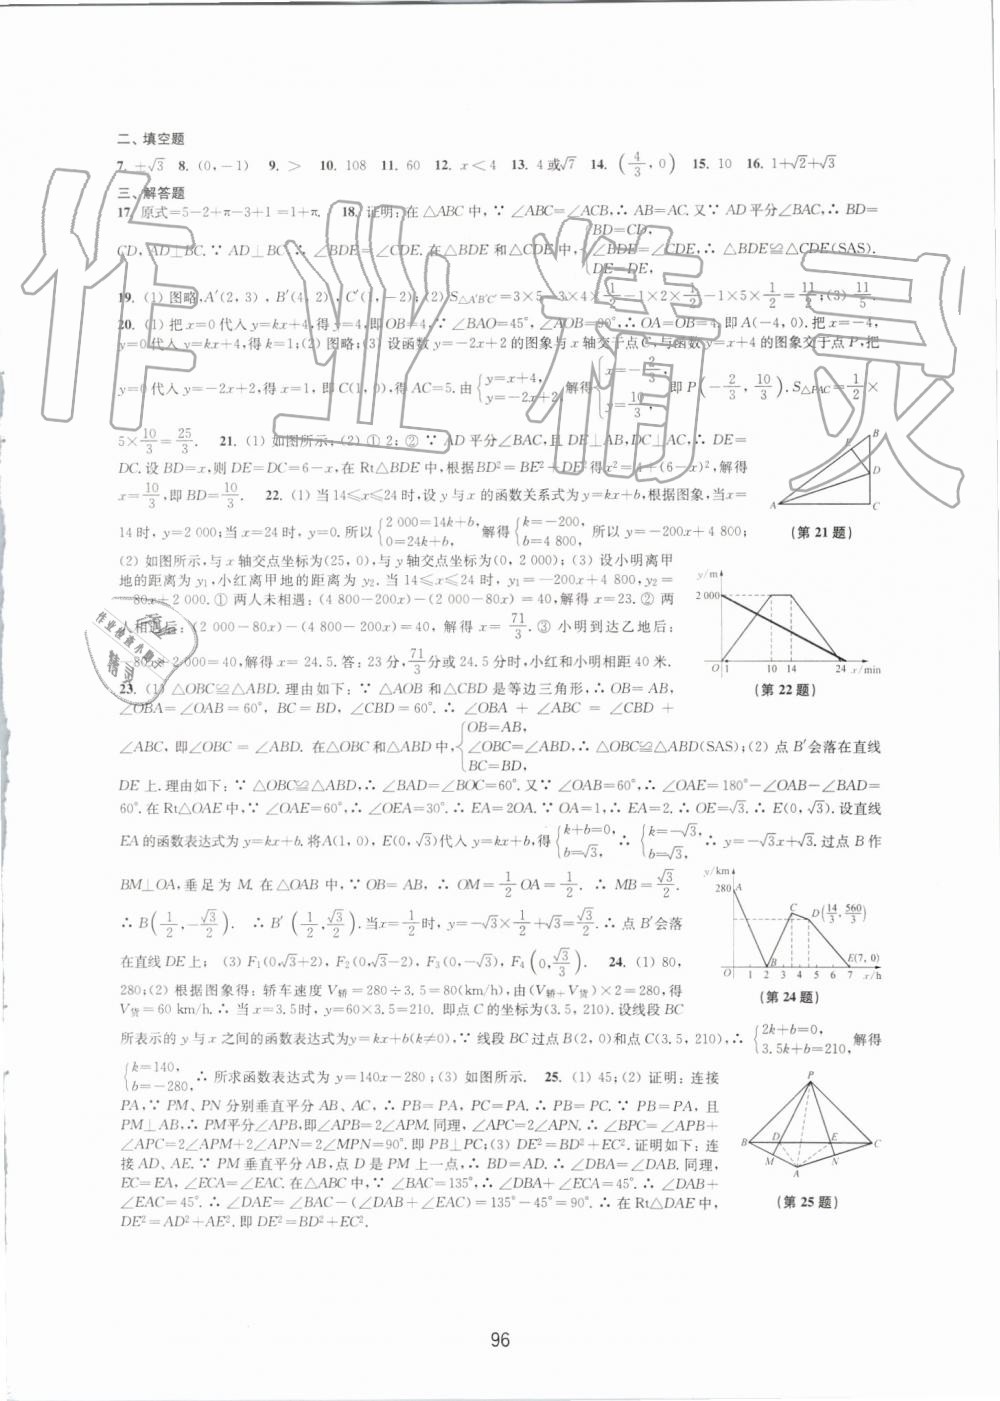 二、填空题
7. ±√3  8. (0,-1)  9. >  10. 108  11. 60  12. x<4  13. 4或√7  14. (4/3, 0)  15. 10  16. 1+√2+√3
三、解答题
17. 原式=5-2+π-3+1=1+π.  18. 证明:在△ABC中,∵∠ABC=∠ACB,∴AB=AC.又∵AD平分∠BAC,∴BD=
CD,AD⊥BC.∵AD⊥BC,∴∠BDE=∠CDE.在△BDE和△CDE中,{BD=CD, ∠BDE=∠CDE, DE=DE, ∴△BDE≌△CDE(SAS).
19. (1) 图略,A′(2,3),B′(4,2),C′(1,-2);(2) S△A′B′C′=3×5-3×4×1/2-1×2×1/2-1×5×1/2=11/2;(3) 11/5.
20. (1) 把x=0代入y=kx+4,得y=4,即OB=4,∵∠BAO=45°,∠AOB=90°,∴OA=OB=4,即A(-4,0).把x=-4,
y=0代入y=kx+4,得k=1;(2) 图略;(3) 设函数y=-2x+2的图象与x轴交于点C,与函数y=x+4的图象交于点P,把
y=0代入y=-2x+2,得x=1,即C(1,0),得AC=5.由{y=x+4, y=-2x+2, 解得{x=-2/3, y=10/3, 即P(-2/3, 10/3).S△PAC=1/2×
5×10/3=25/3.  21. (1) 如图所示;(2) ① 2;② ∵AD平分∠BAC,且DE⊥AB,DC⊥AC,∴DE=
DC.设BD=x,则DE=DC=6-x,在Rt△BDE中,根据BD²=BE²+DE²得x²=4+(6-x)²,解得
x=10/3,即BD=10/3.  22. (1) 当14≤x≤24时,设y与x的函数关系式为y=kx+b,根据图象,当x=
14时,y=2 000;当x=24时,y=0.所以{2 000=14k+b, 0=24k+b, 解得{k=-200, b=4 800, 所以y=-200x+4 800;
(2) 如图所示,与x轴交点坐标为(25,0),与y轴交点坐标为(0,2 000);(3) 设小明离甲
地的距离为y₁,小红离甲地的距离为y₂.当14≤x≤24时,y₁=-200x+4 800,y₂=
-80x+2 000.① 两人未相遇:(4 800-200x)-(2 000-80x)=40,解得x=23.② 两
人相遇后:(2 000-80x)-(4 800-200x)=40,解得x=71/3.③ 小明到达乙地后:
-80x+2 000=40,解得x=24.5.答:23分,71/3分或24.5分时,小红和小明相距40米.
23. (1) △OBC≌△ABD.理由如下:∵△AOB和△CBD是等边三角形,∴OB=AB,
∠OBA=∠OAB=60°,BC=BD,∠CBD=60°.∴∠OBA+∠ABC=∠CBD+
∠ABC,即∠OBC=∠ABD.在△OBC和△ABD中,{OB=AB, ∠OBC=∠ABD, BC=BD, ∴△OBC≌△ABD(SAS);(2) 点B′会落在直线
DE上.理由如下:∵△OBC≌△ABD,∴∠BAD=∠BOC=60°.又∵∠OAB=60°,∴∠OAE=180°-∠OAB-∠BAD=
60°.在Rt△OAE中,∵∠OAE=60°,∴∠OEA=30°.∴EA=2OA.∵OA=1,∴EA=2.∴OE=√3.∴E(0,√3).设直线
EA的函数表达式为y=kx+b.将A(1,0),E(0,√3)代入y=kx+b,得{k+b=0, b=√3, ∴{k=-√3, b=√3, ∴y=-√3x+√3.过点B作
BM⊥OA,垂足为M.在△OAB中,∵OB=AB,∴OM=1/2OA=1/2.∴MB=√3/2.
∴B(1/2,-√3/2).∴B′(1/2,√3/2).当x=1/2时,y=-√3×1/2+√3=√3/2.∴点B′会落
在直线DE上;(3) F₁(0,√3+2),F₂(0,√3-2),F₃(0,-√3),F₄(0,√3/3).  24. (1) 80,
280;(2) 根据图象得:轿车速度V轿=280÷3.5=80(km/h),由(V轿+V货)×2=280,得
V货=60 km/h.∴当x=3.5时,y=60×3.5=210.即点C的坐标为(3.5,210).设线段BC
所表示的y与x之间的函数表达式为y=kx+b(k≠0),∵线段BC过点B(2,0)和点C(3.5,210),∴{2k+b=0, 3.5k+b=210, 解得
{k=140, b=-280, ∴所求函数表达式为y=140x-280;(3) 如图所示.  25. (1) 45;(2) 证明:连接
PA,∵PM、PN分别垂直平分AB、AC,∴PB=PA,PC=PA.∴PB=PC.∵PB=PA,且
PM⊥AB,∴PM平分∠APB,即∠APB=2∠APM.同理,∠APC=2∠APN.∴∠BPC=∠APB+
∠APC=2∠APM+2∠APN=2∠MPN=90°.即PB⊥PC;(3) DE²=BD²+EC².证明如下:连
接AD、AE.∵PM垂直平分AB,点D是PM上一点,∴BD=AD.∴∠DBA=∠DAB.同理,
EC=EA,∠ECA=∠EAC.在△ABC中,∵∠BAC=135°,∴∠DBA+∠ECA=45°.∴∠DAB+
∠EAC=45°.∴∠DAE=∠BAC-(∠DAB+∠EAC)=135°-45°=90°.∴在Rt△DAE中,
DE²=AD²+AE².即DE²=BD²+EC².
B
E
D
A
C
(第21题)
y/m
2 000
O 1 10 14 24 x/min
(第22题)
y/km
280 A
C
D(14/3, 560/3)
B
E(7,0)
O 1 2 3 4 5 6 7 x/h
(第24题)
P
B D E C
M A N
(第25题)
96
作业精灵
作业检查小助手